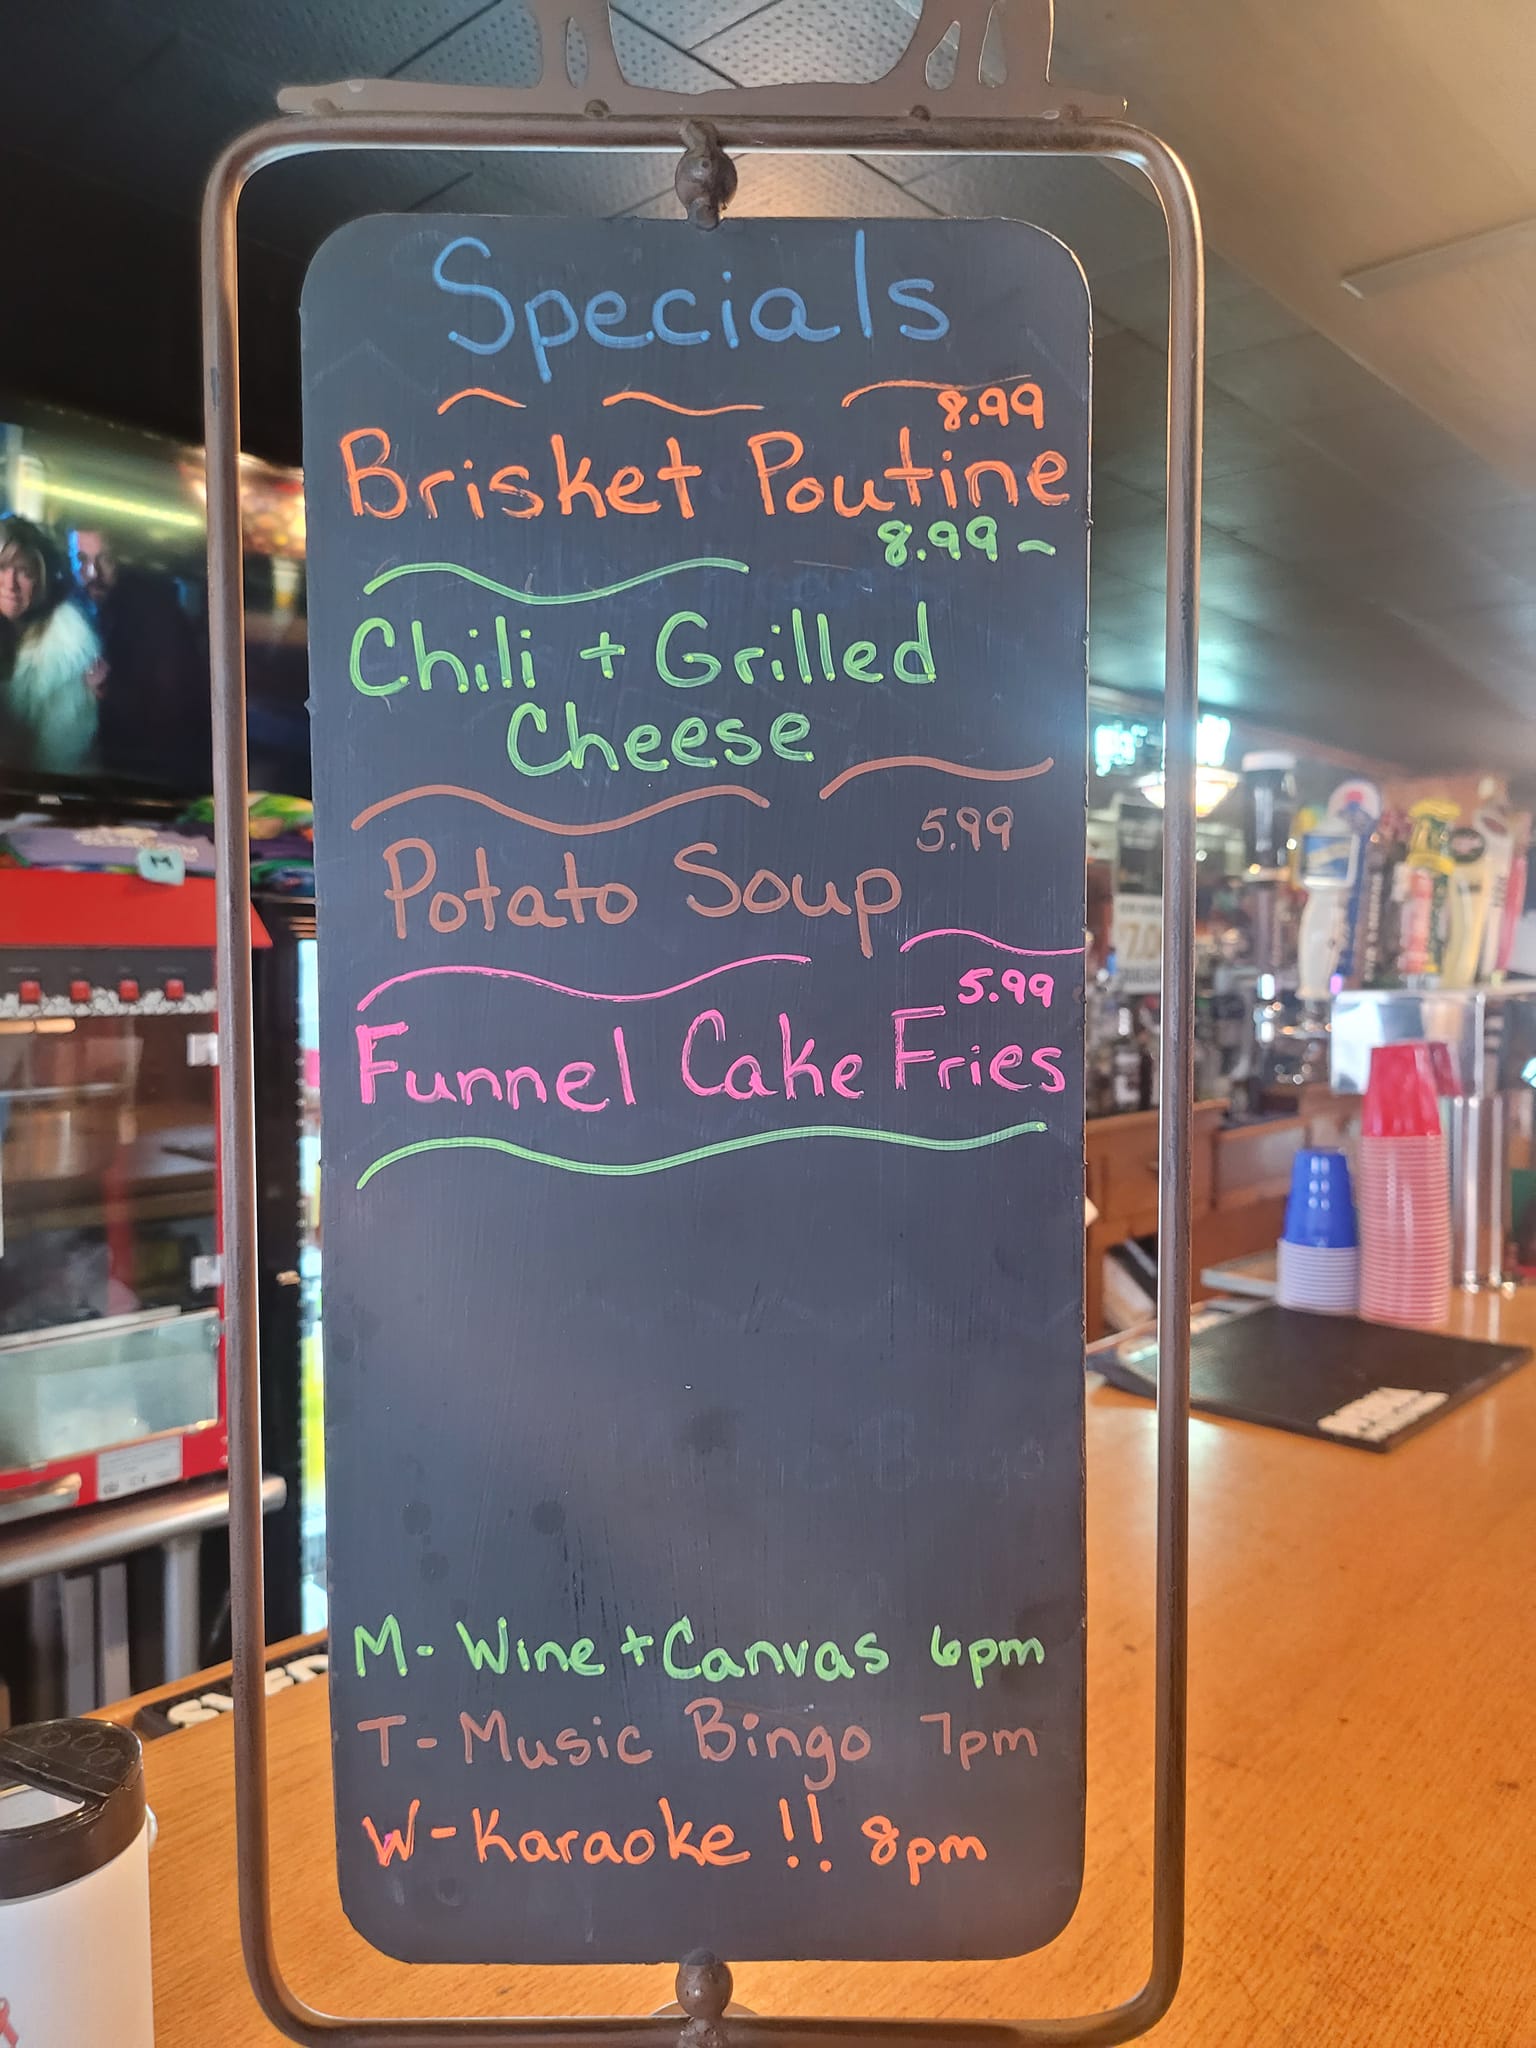 Specials
8.99
Brisket Poutine
8.99 ~
Chili + Grilled
Cheese
5.99
Potato Soup
5.99
Funnel Cake Fries
M- Wine + Canvas 6pm
T- Music Bingo 7pm
W- Karaoke !! 8pm
M